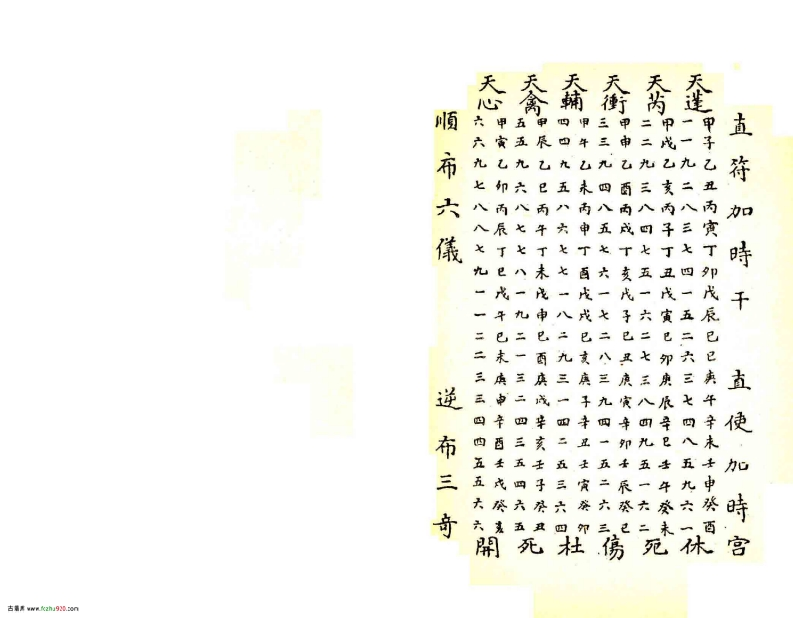 直符加時干　直使加時宮
天蓬
甲子乙丑丙寅丁卯戊辰己巳庚午辛未壬申癸酉
一一九二八三七四一五二六三七四八五九六一
休
天芮
甲戌乙亥丙子丁丑戊寅己卯庚辰辛巳壬午癸未
二二九三八四七五一六二七三八四九五一六二
死
天衝
甲申乙酉丙戌丁亥戊子己丑庚寅辛卯壬辰癸巳
三三九四八五七六一七二八三九四一五二六三
傷
天輔
甲午乙未丙申丁酉戊戌己亥庚子辛丑壬寅癸卯
四四九五八六七七一八二九三一四二五三六四
杜
天禽
甲辰乙巳丙午丁未戊申己酉庚戌辛亥壬子癸丑
五五九六八七七八一九二一三二四三五四六五
死
天心
甲寅乙卯丙辰丁巳戊午己未庚申辛酉壬戌癸亥
六六九七八八七九一一二二三三四四五五六六
開
順布六儀　逆布三奇